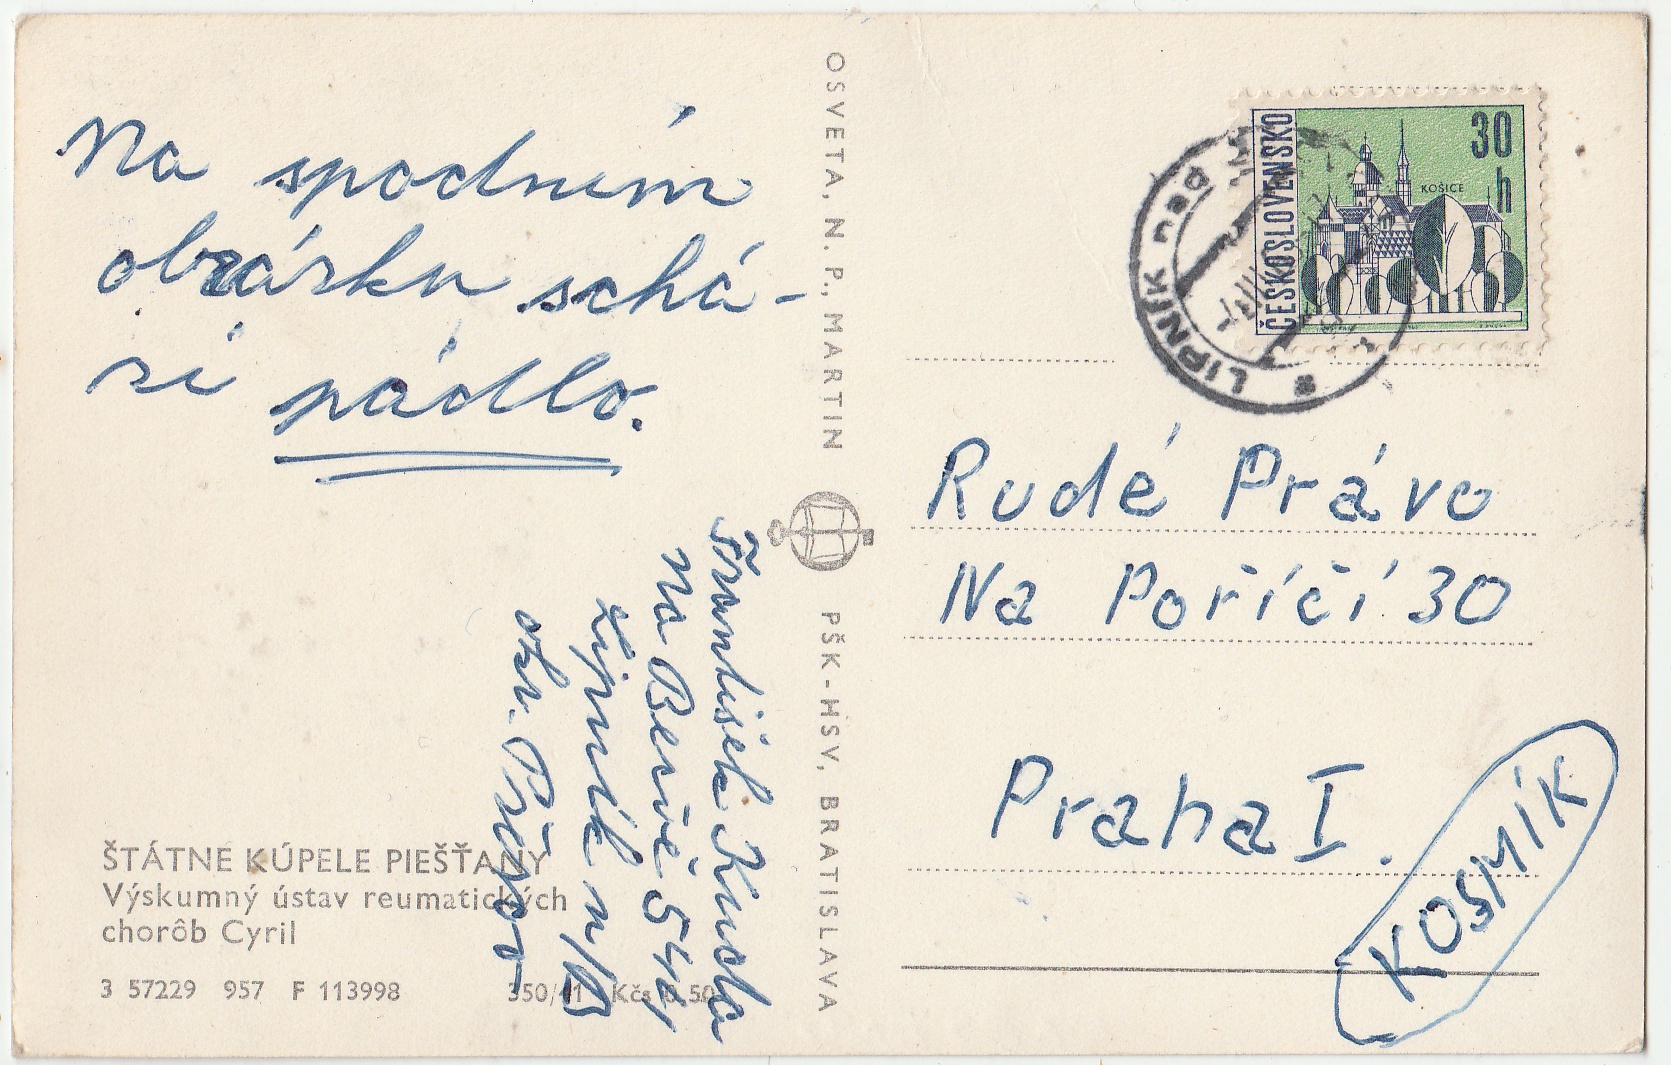 Na spodním
obrázku schá-
zí pádlo.
František Kucla
Na Bečvě 544
Lipník n/B
okr. Přerov
ŠTÁTNE KÚPELE PIEŠŤANY
Výskumný ústav reumatických
chorôb Cyril
3 57229 957 F 113998 350/41 Kčs 0.50
OSVETA, N. P., MARTIN PŠK-HSV, BRATISLAVA
ČESKOSLOVENSKO
30
h
KOŠICE
LIPNÍK nad
Rudé Právo
Na Poříčí 30
Praha I.
KOSMÍK